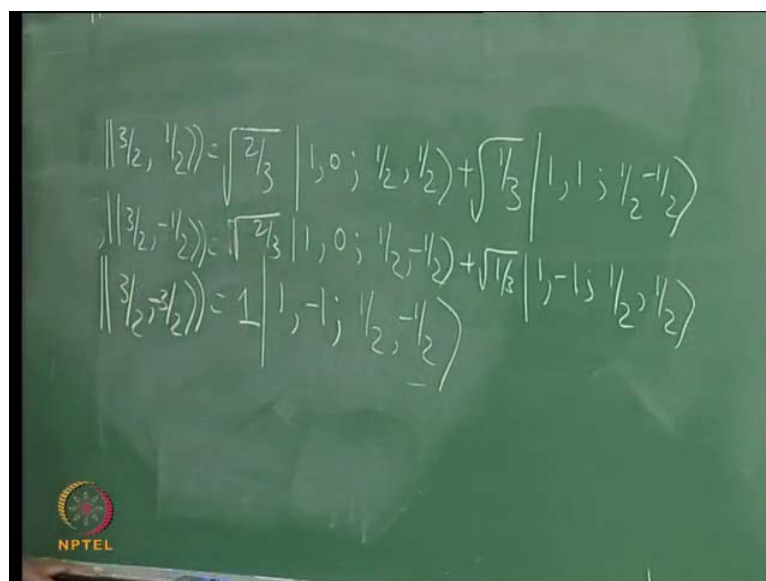 ||3/2, 1/2⟩⟩ = √2/3 |1, 0 ; 1/2, 1/2⟩ + √1/3 |1, 1 ; 1/2 -1/2⟩
,||3/2, -1/2⟩⟩ = √2/3 |1, 0 ; 1/2, -1/2⟩ + √1/3 |1, -1 ; 1/2, 1/2⟩
||3/2, -3/2⟩⟩ = 1 |1, -1 ; 1/2, -1/2⟩
NPTEL